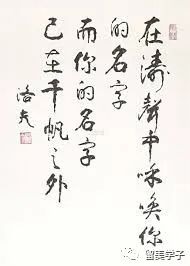 在濤聲中呼喚你
的名字
而你的名字
已在千帆之外
洛夫
留美学子